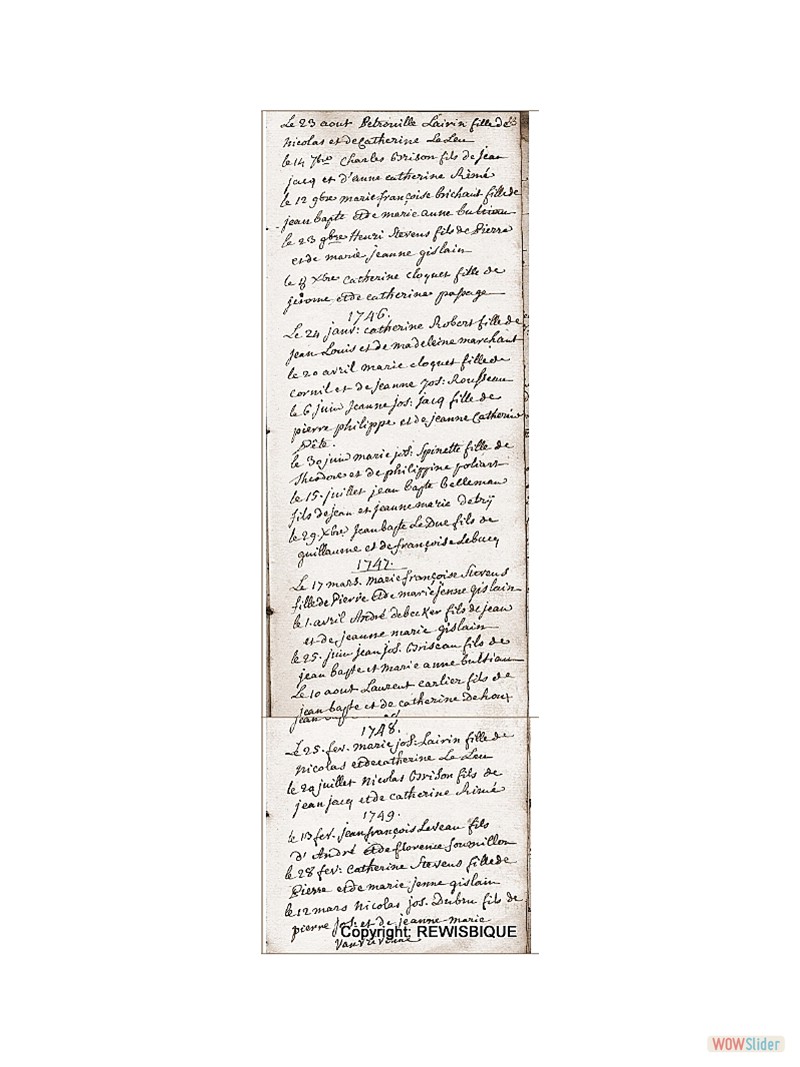 Le 23 aout Petronille Lairin fille de
Nicolas et de Catherine Le Leu
le 14 7bre Charles Brison fils de jean
jacq et d'anne catherine Rimé
le 12 9bre marie françoise brichant fille de
jean bapte et de marie anne buttiau
le 23 9bre Henri Stevens fils de Pierre
et de marie jeanne gislain
le 8 Xbre Catherine cloquet fille de
jerome et de catherine passage
1746.
Le 24 janv: catherine Robert fille de
jean Louis et de madeleine marchant
le 20 avril marie cloquet fille de
cornil et de jeanne jos: Rousseau
le 6 juin Jeanne jos: jacq fille de
pierre philippe et de jeanne Catherine
Pêtê.
le 30 juin marie jos: Spinette fille de
Theodore et de philippine poliart
le 15 juillet jean bapte belleman
fils de jean et jeanne marie detrÿ
le 29 Xbre Jean bapte Le Duc fils de
guillaume et de françoise Lebucq
1747.
Le 17 mars. marie françoise Stevens
fille de Pierre et de marie jenne gislain
le 1. avril André debecker fils de jean
et de jeanne marie gislain
le 25. juin jean jos. Briseau fils de
jean bapte et marie anne buttiau
Le 10 aout Laurent carlier fils de
jean bapte et de catherine Dehoux
1748.
Le 25. fev. marie jos: Lairin fille de
Nicolas et de catherine Le Leu
le 20 juillet Nicolas Brison fils de
jean jacq et de catherine Rimé
1749.
le 13 fev. jean françois Leveau fils
d'André et de florence soumillon
le 28 fev: Catherine Stevens fille de
Pierre et de marie jenne gislain
le 12 mars Nicolas jos. Dubru fils de
pierre jos: et de jeanne marie
Copyright: REWISBIQUE
WOWSlider